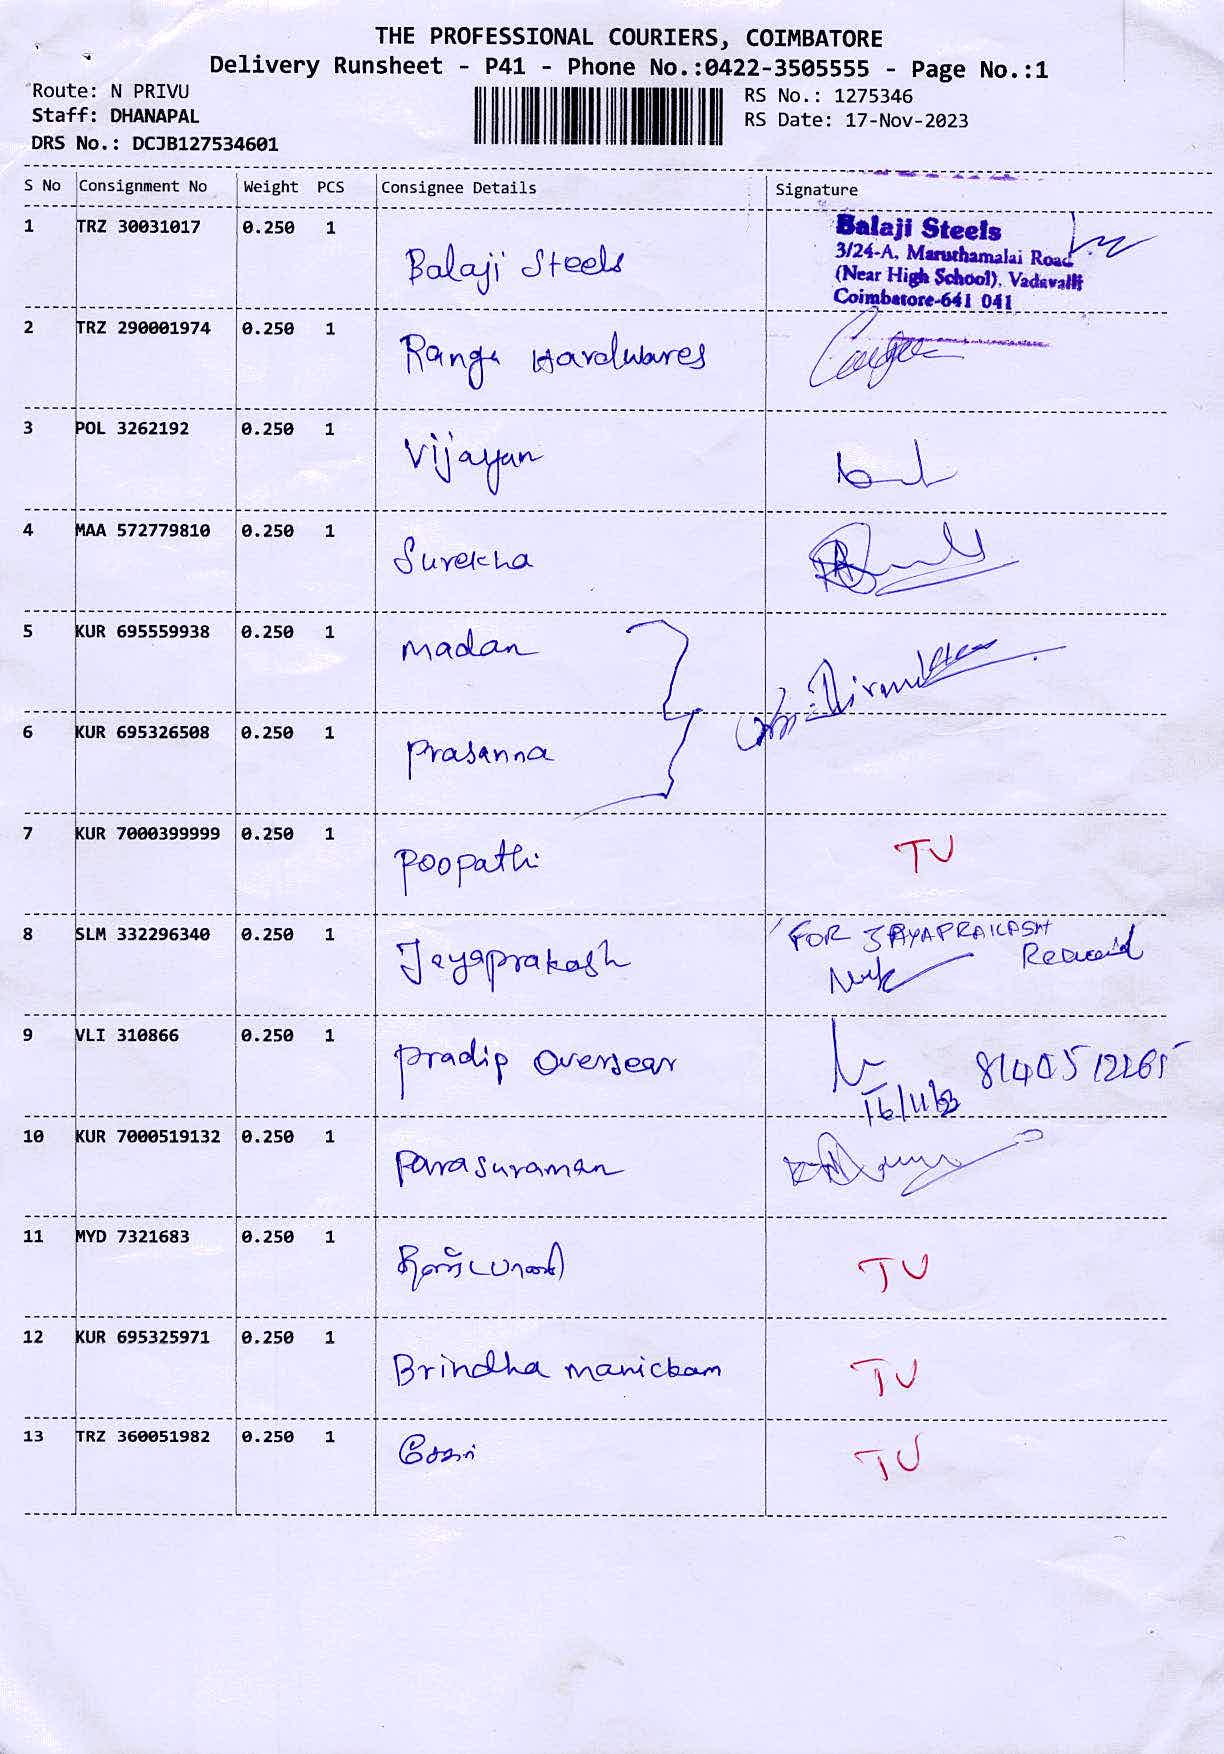 THE PROFESSIONAL COURIERS, COIMBATORE
Delivery Runsheet - P41 - Phone No.:0422-3505555 - Page No.:1
Route: N PRIVU
Staff: DHANAPAL
DRS No.: DCJB127534601
RS No.: 1275346
RS Date: 17-Nov-2023
S No Consignment No Weight PCS Consignee Details Signature
1 TRZ 30031017 0.250 1 Balaji Steels
Balaji Steels
3/24-A, Maruthamalai Road
(Near High School), Vadavalli
Coimbatore-641 041
2 TRZ 290001974 0.250 1 Ranga Hardwares
3 POL 3262192 0.250 1 Vijayan
4 MAA 572779810 0.250 1 Surekha
5 KUR 695559938 0.250 1 Madan
6 KUR 695326508 0.250 1 Prasanna
7 KUR 7000399999 0.250 1 Poopathi TU
8 SLM 332296340 0.250 1 Jayaprakash FOR JAYAPRAKASH
Received
9 VLI 310866 0.250 1 Pradip Oversear
16/11/23
10 KUR 7000519132 0.250 1 Parasuraman
11 MYD 7321683 0.250 1 தண்டபாணி TU
12 KUR 695325971 0.250 1 Brindha Manickam TU
13 TRZ 360051982 0.250 1 சேகர் TU